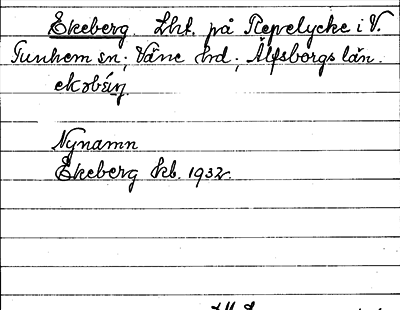 Ekeberg. Lht. på Repelycke i V.
Tunhem sn; Väne hd; Älfsborgs län.
Nynamn
Ekeberg kb. 1932.